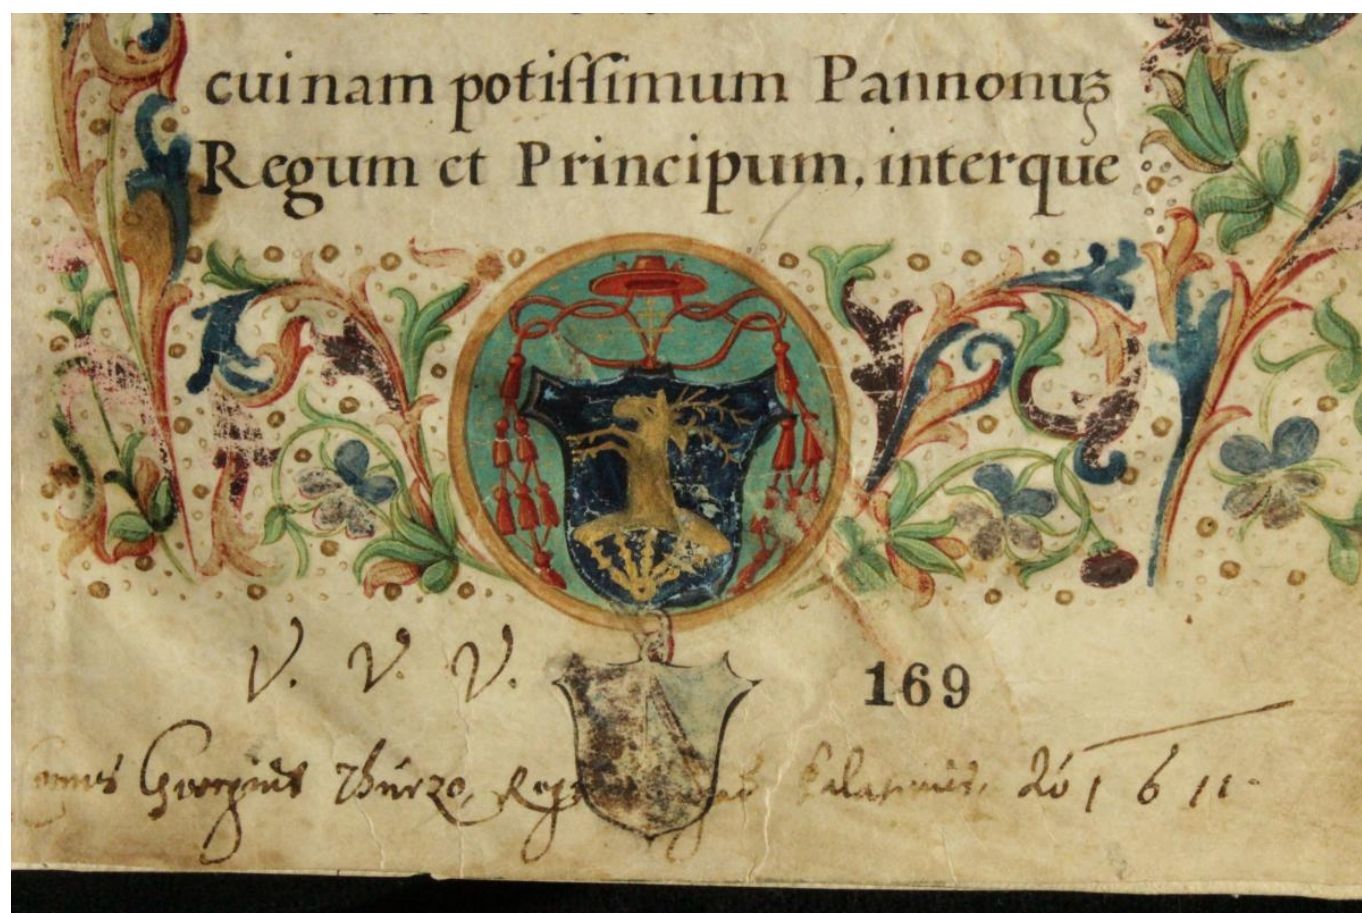 cuinam potiſſimum Pannonuꝫ
Regum et Principum, interque
V. V. V.
169
Georgius Thurzo, Palatinus, 1611.